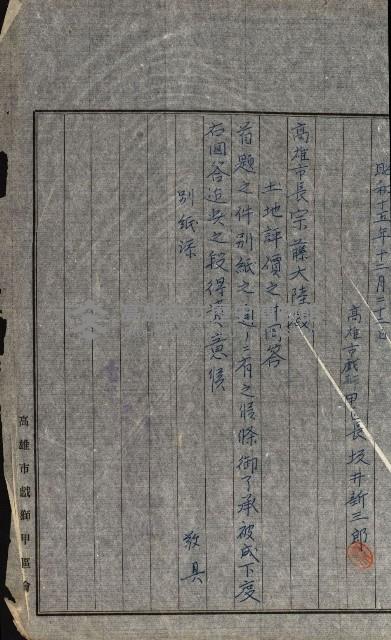 昭和十五年十二月二十一日
高雄市戲獅甲區長 坂井新三郎
高雄市長宗藤大陸殿
土地評價之件回答
首題之件別紙之通リニ有之候條御了承被成下度
右回答迄其之段得貴意候
敬具
別紙添
高雄市戲獅甲區會